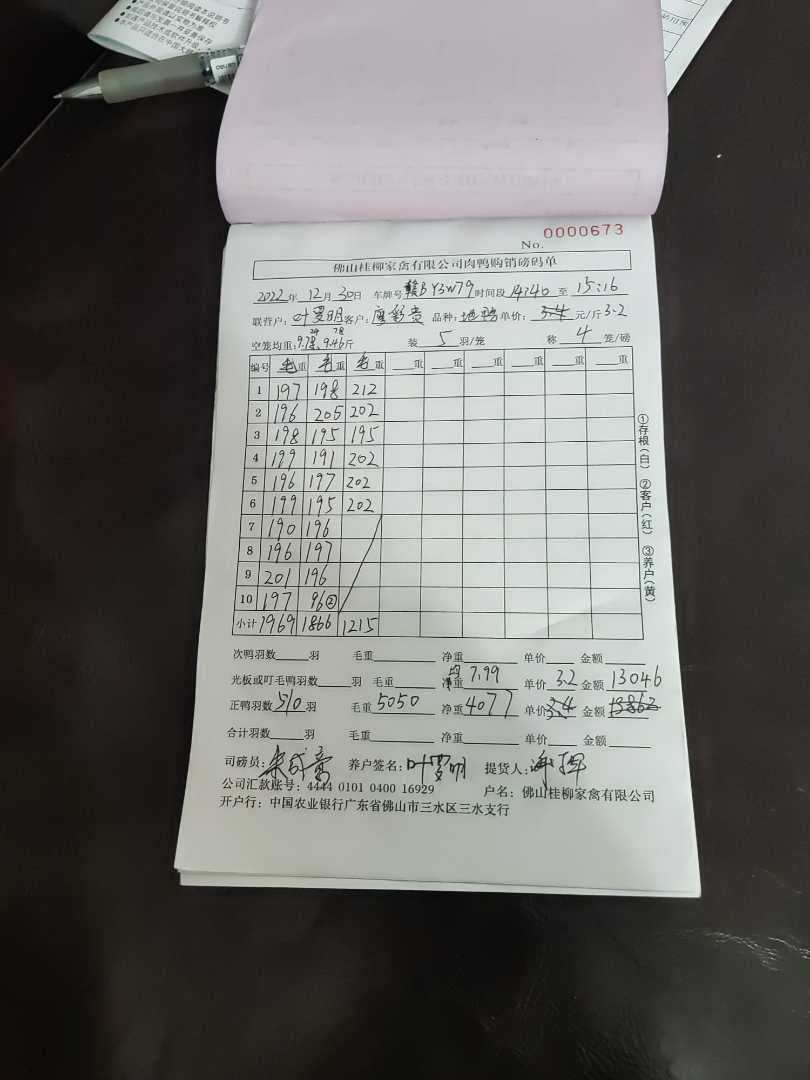 No. 0000673
佛山桂柳家禽有限公司肉鸭购销磅码单
2022年12月30日 车牌号赣BY3W79时间段14:40至15:16
联营户:叶罗明客户:廖彩贵品种:地鸭单价:3.4元/斤3.2
空笼均重: 9.46斤 装5羽/笼 称4笼/磅
编号 毛重 毛重 毛重 重 重 重 重 重 重
1 197 198 212
2 196 205 202
3 198 195 195
4 199 191 202
5 196 197 202
6 199 195 202
7 190 196
8 196 197
9 201 196
10 197 96②
小计 1969 1866 1215
①存根(白) ②客户(红) ③养户(黄)
次鸭羽数 羽 毛重 净重 单价 金额
光板或叮毛鸭羽数 羽 毛重 均净重7.99 单价3.2 金额13046
正鸭羽数510羽 毛重5050 净重4077 单价3.4 金额13862
合计羽数 羽 毛重 净重 单价 金额
司磅员: 养户签名:叶罗明 提货人:
公司汇款账号:4444 0101 0400 16929 户名:佛山桂柳家禽有限公司
开户行:中国农业银行广东省佛山市三水区三水支行